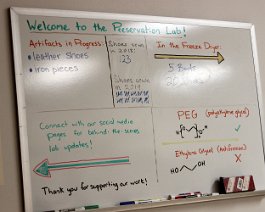 Welcome to the Preservation Lab!
Artifacts in Progress:
• leather shoes
• iron pieces
Shoes sewn
in 2018:
123
Shoes sewn
in 2019
In the Freeze Dryer:
5 Boots
Connect with our social media
pages for behind-the-scenes
lab updates!
Thank you for supporting our work!
PEG (polyethylene glycol)
✓
Ethylene Glycol (Antifreeze)
X
HO
OH